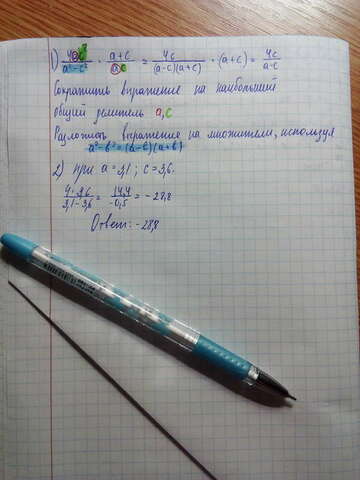 1) 4ac²/(a²-c²) · (a+c)/(ac) = 4c/((a-c)(a+c)) · (a+c) = 4c/(a-c)
Сократить выражение на наибольший
общий делитель a,c
Разложить выражение на множители, используя
a²-b²=(a-c)(a+b)
2) при a=3,1 ; c=3,6.
4·3,6/(3,1-3,6) = 14,4/(-0,5) = -28,8
Ответ: -28,8